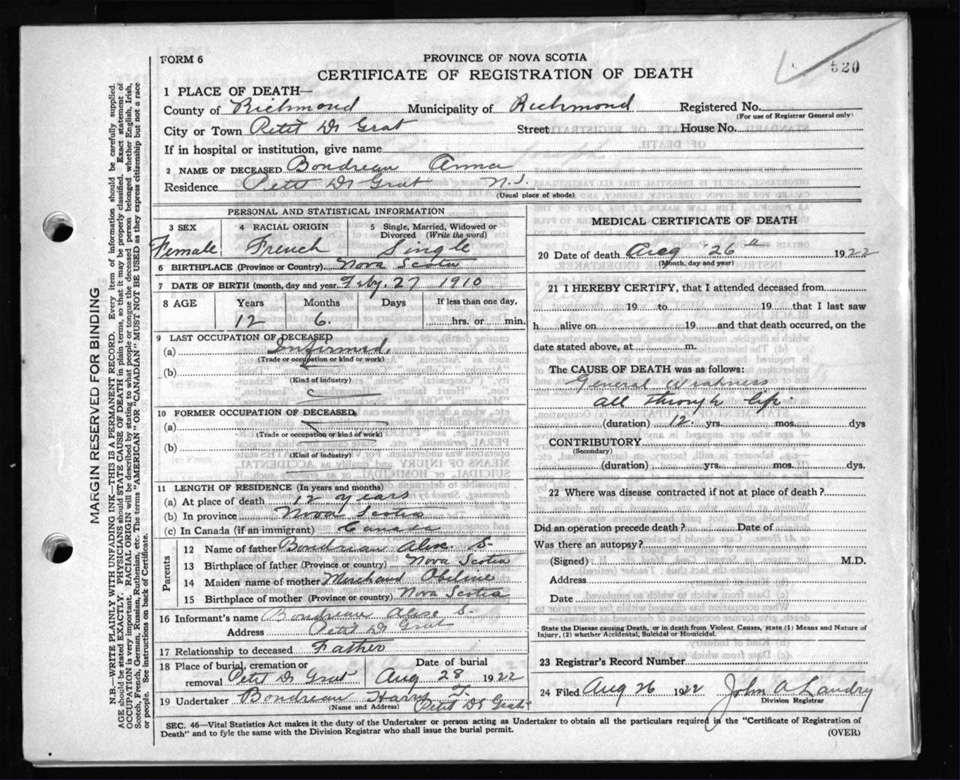 FORM 6
PROVINCE OF NOVA SCOTIA
CERTIFICATE OF REGISTRATION OF DEATH
520
1 PLACE OF DEATH—
County of Richmond Municipality of Richmond Registered No.
(For use of Registrar General only)
City or Town Petit De Grat Street House No.
If in hospital or institution, give name
2 NAME OF DECEASED Boudreau Anna
Residence Petit De Grat N.S.
(Usual place of abode)
PERSONAL AND STATISTICAL INFORMATION
3 SEX 4 RACIAL ORIGIN 5 Single, Married, Widowed or Divorced (Write the word)
Female French Single
6 BIRTHPLACE (Province or Country) Nova Scotia
7 DATE OF BIRTH (month, day and year) Feby. 27 1910
8 AGE Years Months Days If less than one day,
12 6. hrs. or min.
9 LAST OCCUPATION OF DECEASED
(a) Infirmed.
(Trade or occupation or kind of work)
(b)
(Kind of industry)
10 FORMER OCCUPATION OF DECEASED
(a)
(Trade or occupation or kind of work)
(b)
(Kind of industry)
11 LENGTH OF RESIDENCE (In years and months)
(a) At place of death 12 years
(b) In province Nova Scotia
(c) In Canada (if an immigrant) Canada
Parents
12 Name of father Boudreau S.
13 Birthplace of father (Province or country) Nova Scotia
14 Maiden name of mother
15 Birthplace of mother (Province or country) Nova Scotia
16 Informant's name Boudreau S.
Address Petit De Grat
17 Relationship to deceased Father
18 Place of burial, cremation or removal Petit De Grat Date of burial Aug 28 1922
19 Undertaker Boudreau Harry T.
(Name and Address) Petit De Grat
MEDICAL CERTIFICATE OF DEATH
20 Date of death Aug 26th 1922
(Month, day and year)
21 I HEREBY CERTIFY, that I attended deceased from
19 to 19 that I last saw
h alive on 19 and that death occurred, on the
date stated above, at m.
The CAUSE OF DEATH was as follows:
General Weakness
all through life.
(duration) 12. yrs. mos. dys
CONTRIBUTORY
(Secondary)
(duration) yrs. mos. dys.
22 Where was disease contracted if not at place of death?
Did an operation precede death? Date of
Was there an autopsy?
(Signed) M.D.
Address
Date
State the Disease causing Death, or in death from Violent Causes, state (1) Means and Nature of
Injury, (2) whether Accidental, Suicidal or Homicidal.
23 Registrar's Record Number
24 Filed Aug 26 1922 John A Landry
Division Registrar
SEC. 46—Vital Statistics Act makes it the duty of the Undertaker or person acting as Undertaker to obtain all the particulars required in the "Certificate of Registration of
Death" and to fyle the same with the Division Registrar who shall issue the burial permit.
(OVER)
MARGIN RESERVED FOR BINDING
N.B.—WRITE PLAINLY WITH UNFADING INK—THIS IS A PERMANENT RECORD. Every item of information should be carefully supplied.
AGE should be stated EXACTLY. PHYSICIANS should STATE CAUSE OF DEATH in plain terms, so that it may be properly classified. Exact statement of
OCCUPATION is very important. RACIAL ORIGIN will be described by stating to what people or tongue the deceased person belonged whether English, Irish,
Scotch, French, German, Russian, Ruthenian, etc. The terms "AMERICAN" or "CANADIAN" MUST NOT BE USED as they express citizenship but not a race
or people. See instructions on back of Certificate.